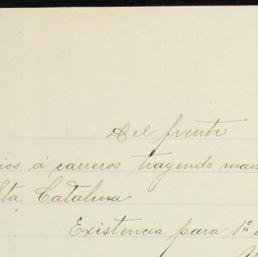 Del frente
ios á carreros trayendo mad
Sta Catalina
Existencia para 1º